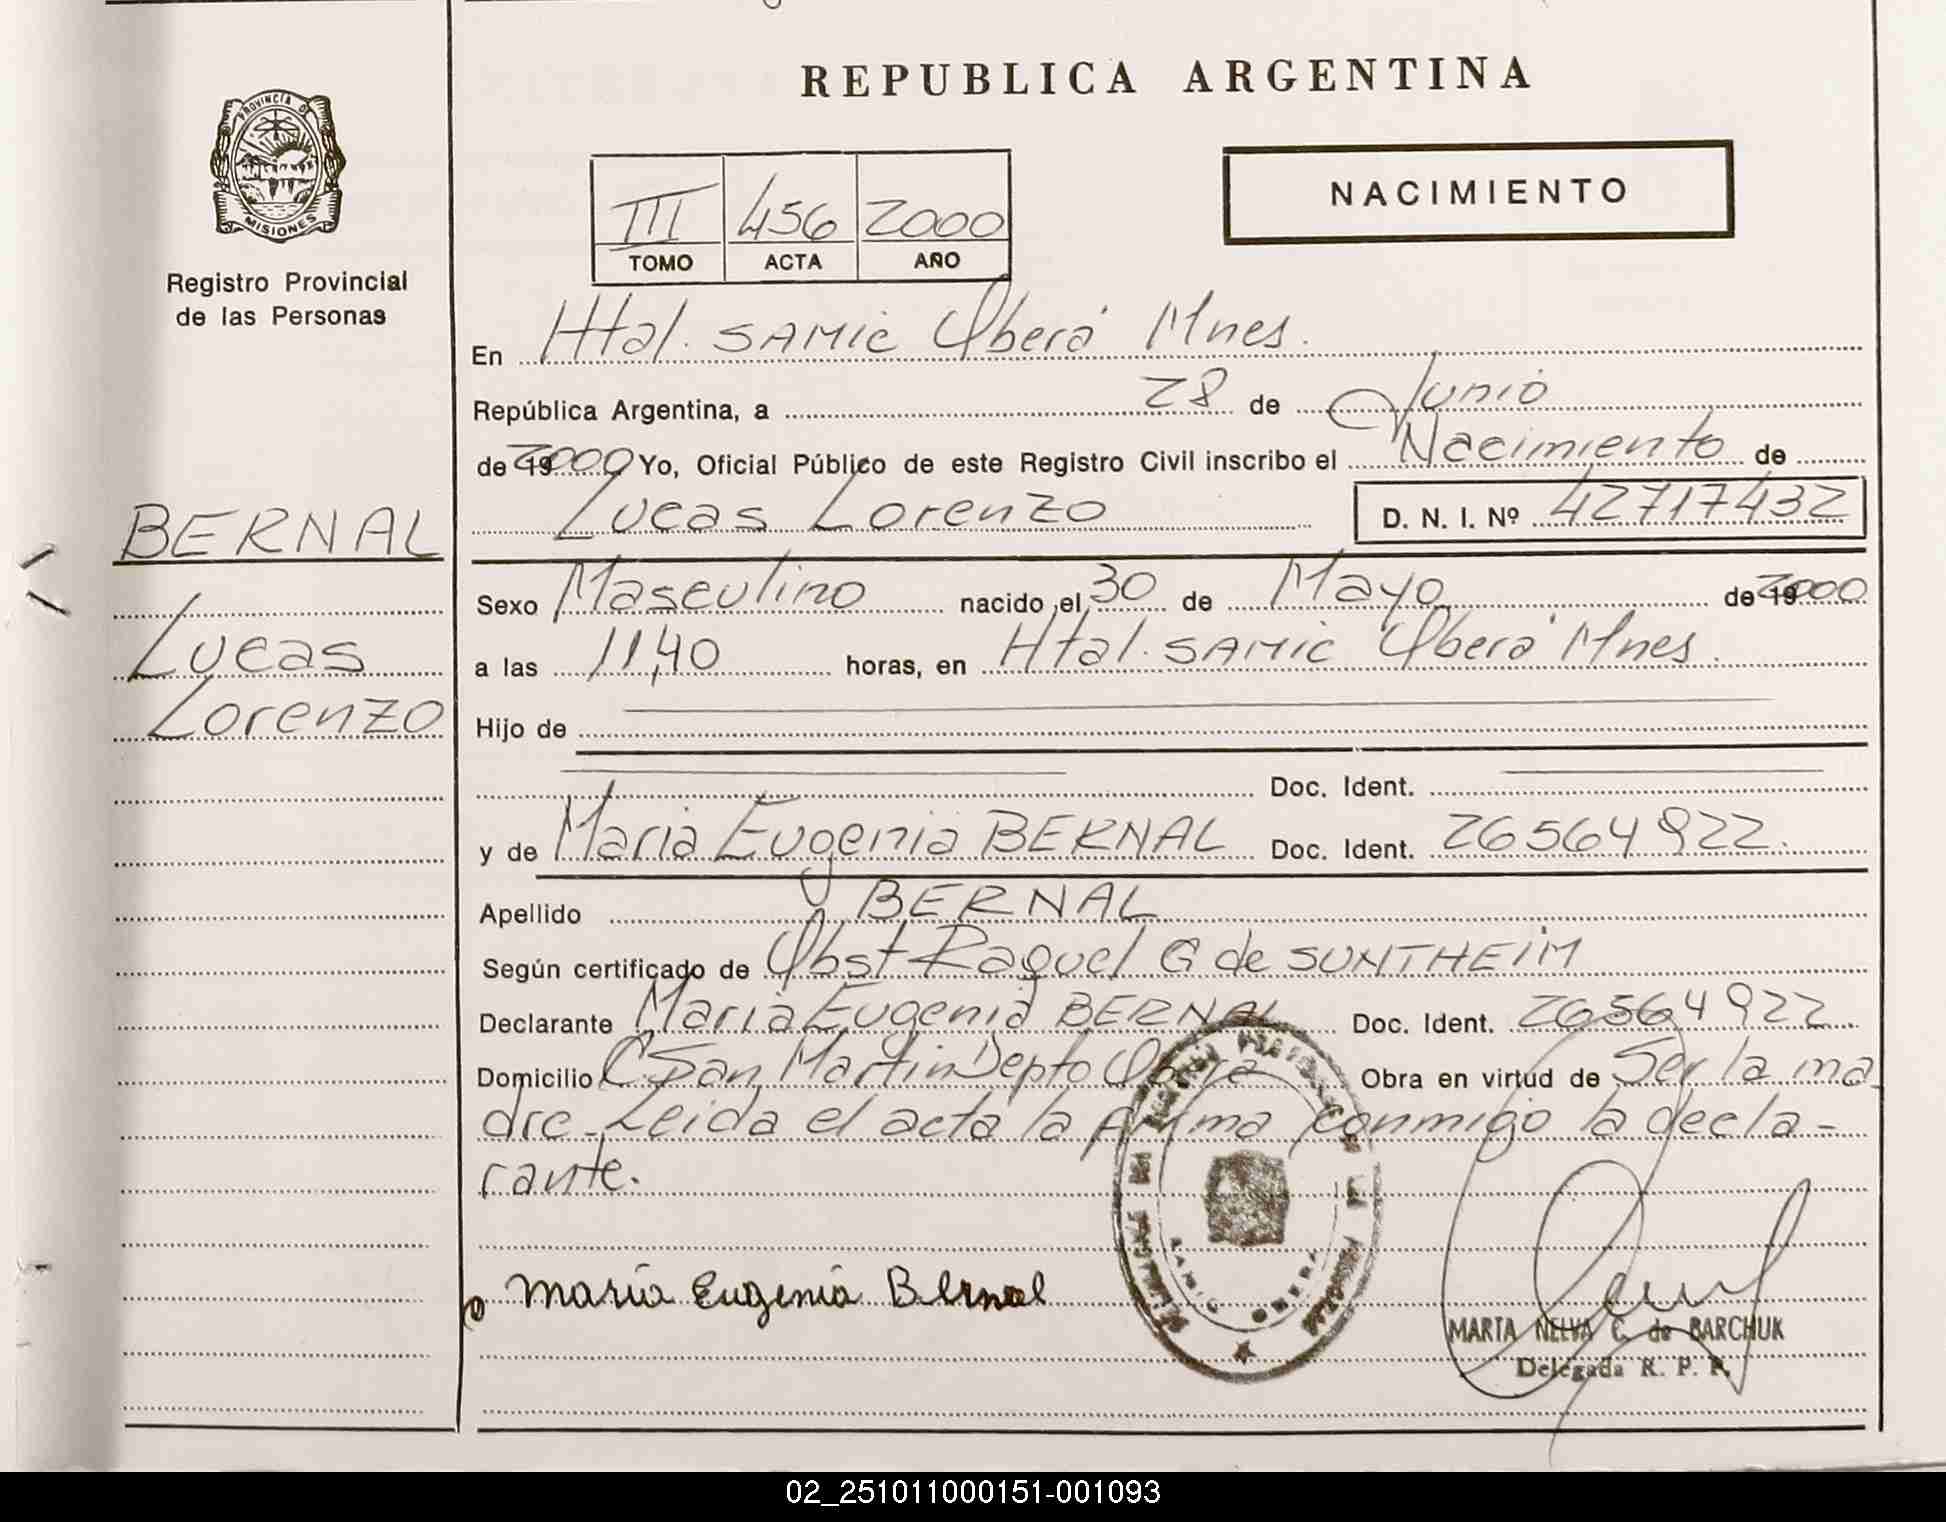 REPUBLICA ARGENTINA
PROVINCIA DE MISIONES
Registro Provincial
de las Personas
NACIMIENTO
III 456 2000
TOMO ACTA AÑO
En Htal. SAMic Oberá Mnes.
República Argentina, a 28 de Junio
de 19 2000 Yo, Oficial Público de este Registro Civil inscribo el Nacimiento de
Lucas Lorenzo D. N. I. Nº 42717432
BERNAL
Lucas
Lorenzo
Sexo Masculino nacido el 30 de Mayo de 19 2000
a las 11,40 horas, en Htal. SAMic Oberá Mnes.
Hijo de
Doc. Ident.
y de Maria Eugenia BERNAL Doc. Ident. 26564922.
Apellido BERNAL
Según certificado de Obst Raquel G de SUNTHEiM
Declarante Maria Eugenia BERNAL Doc. Ident. 26564922.
Domicilio C. San Martin Depto Oberá Obra en virtud de Ser la ma
dre. Leida el acta la firma conmigo la decla-
rante.
SAMIC OBERÁ
maria Eugenia Bernal
MARTA NELVA C. de BARCHUK
Delegada R. P. P.
02_251011000151-001093